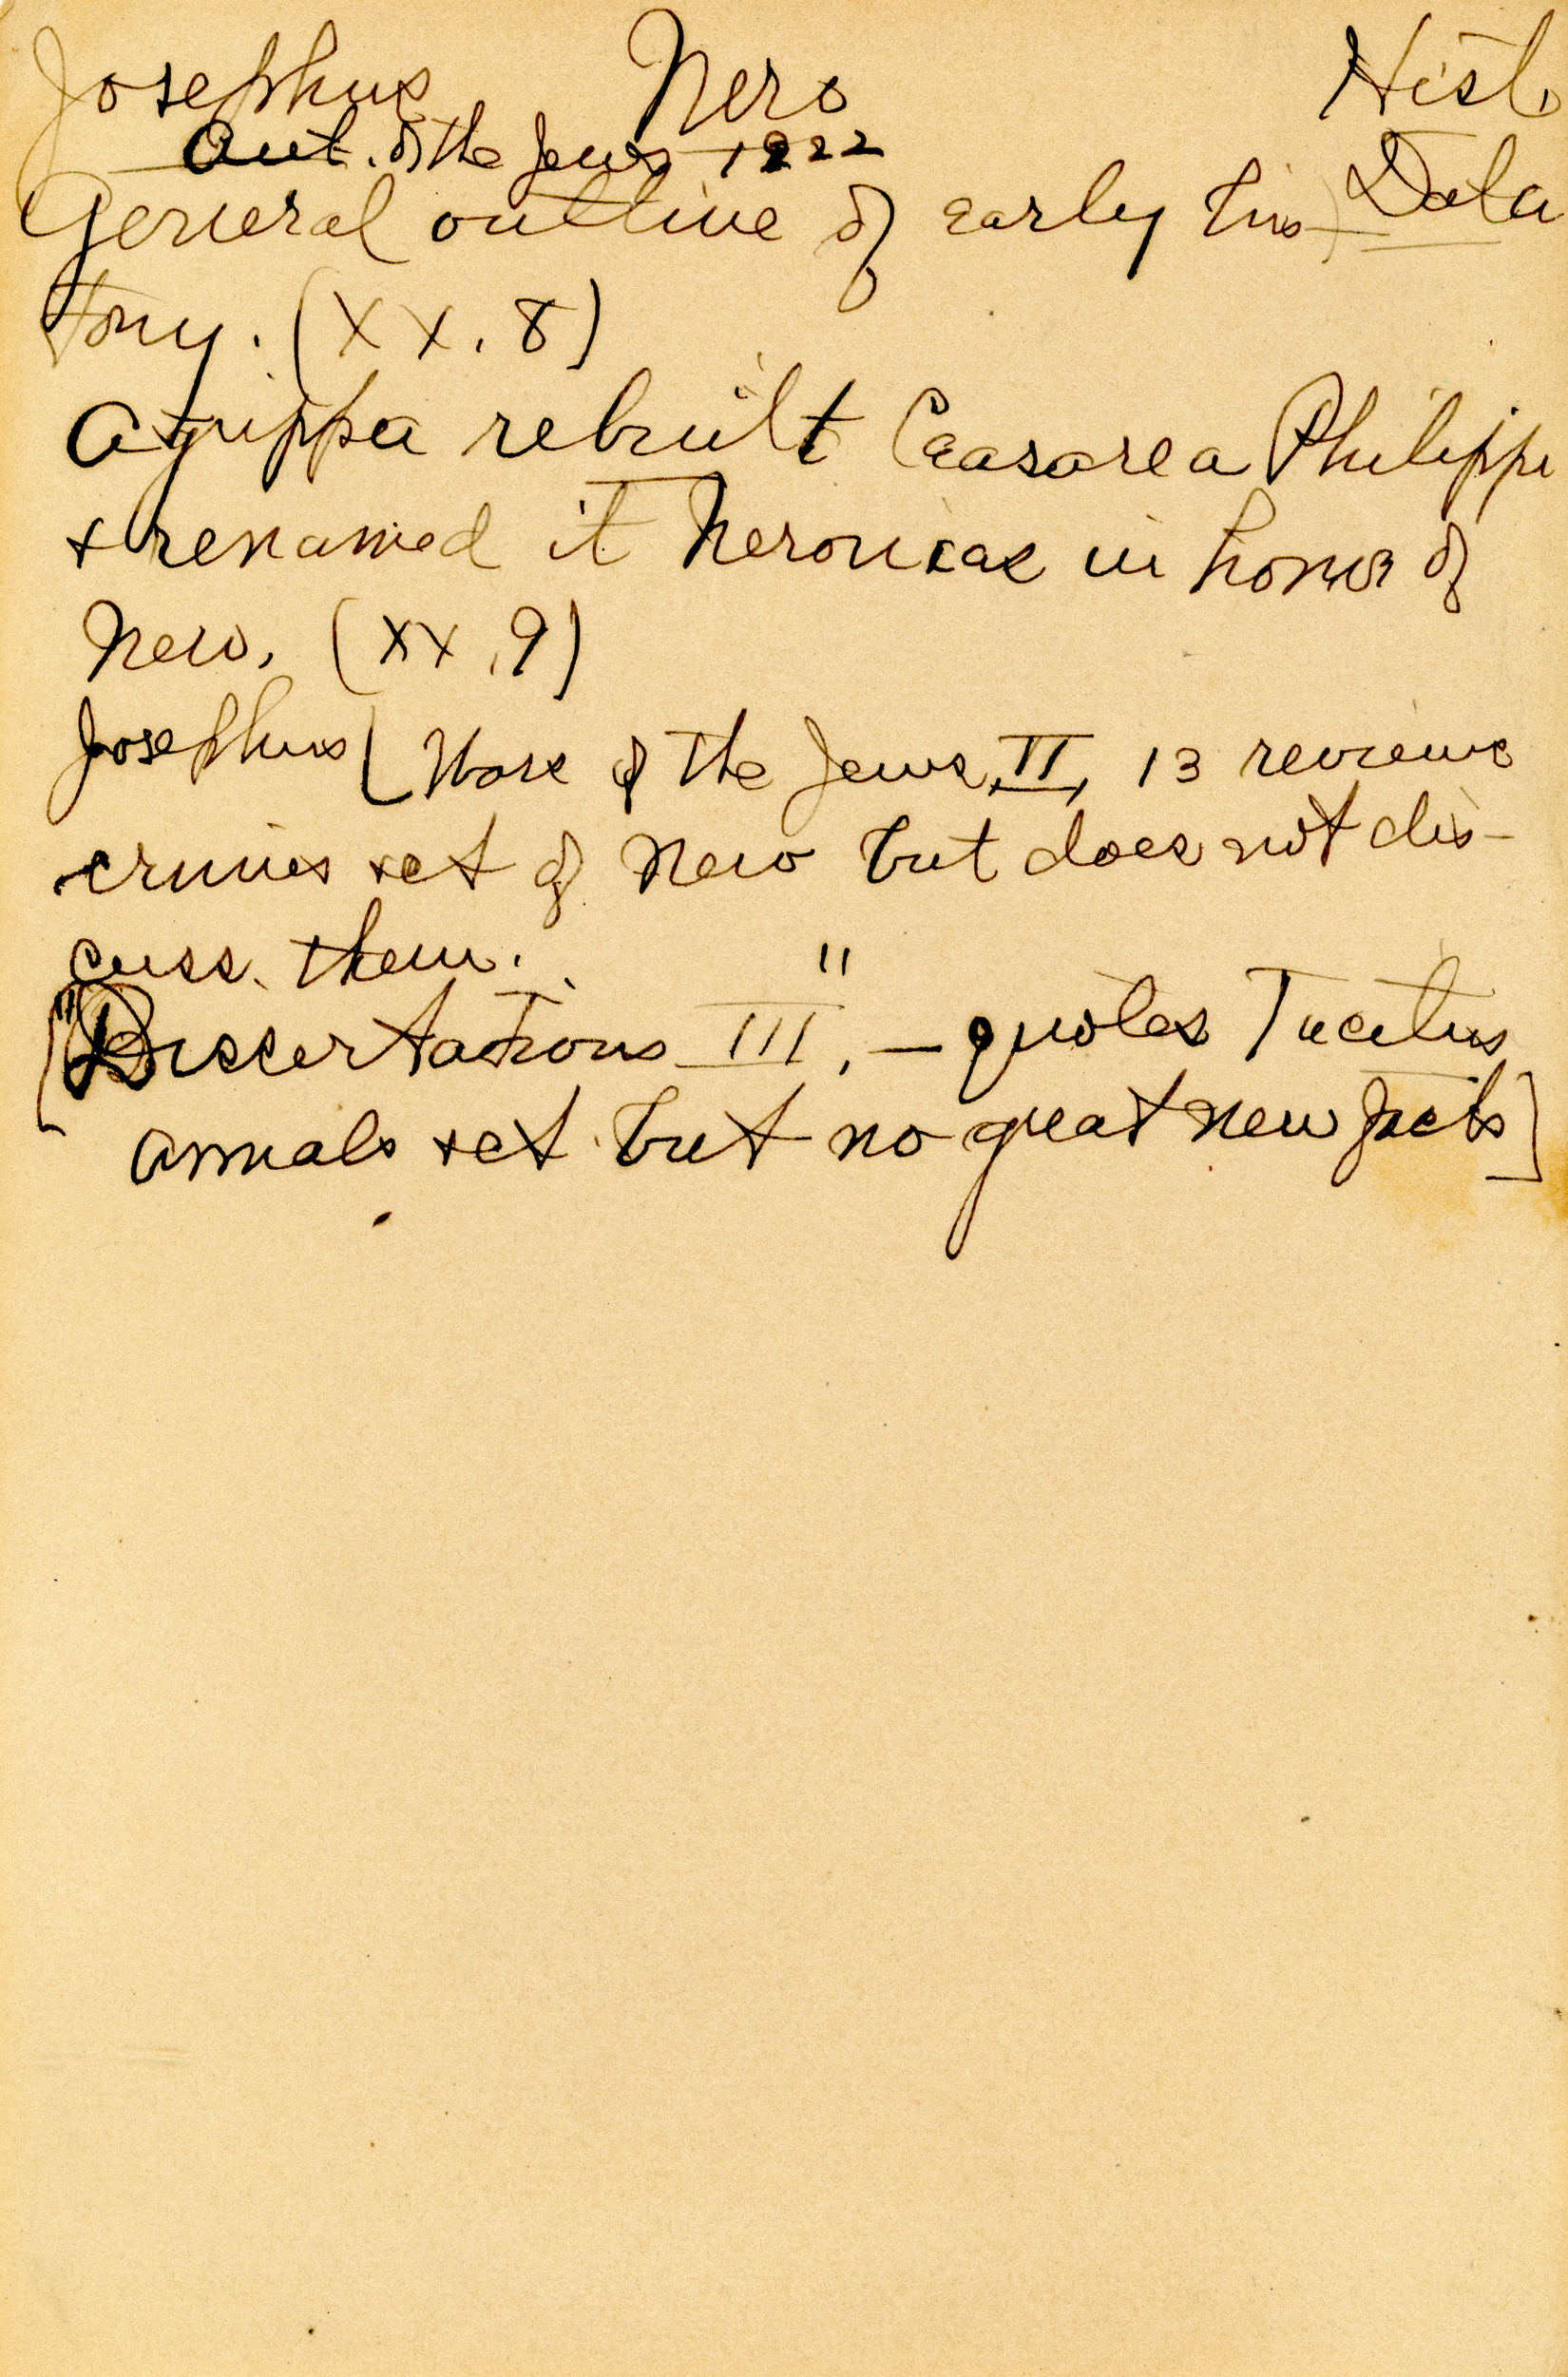 Josephus Nero Hist.
Ant. of the Jews 1222
General outline of early his- Data
tory. (XX. 8)
Agrippa rebuilt Caesarea Philippi
+ renamed it Neronias in honor of
Nero. (XX. 9)
Josephus (Wars of the Jews, II, 13 reviews
crimes +ct of Nero but does not dis-
cuss them.
["Dissertations III," — quotes Tacitus
annals +ct but no great new facts]